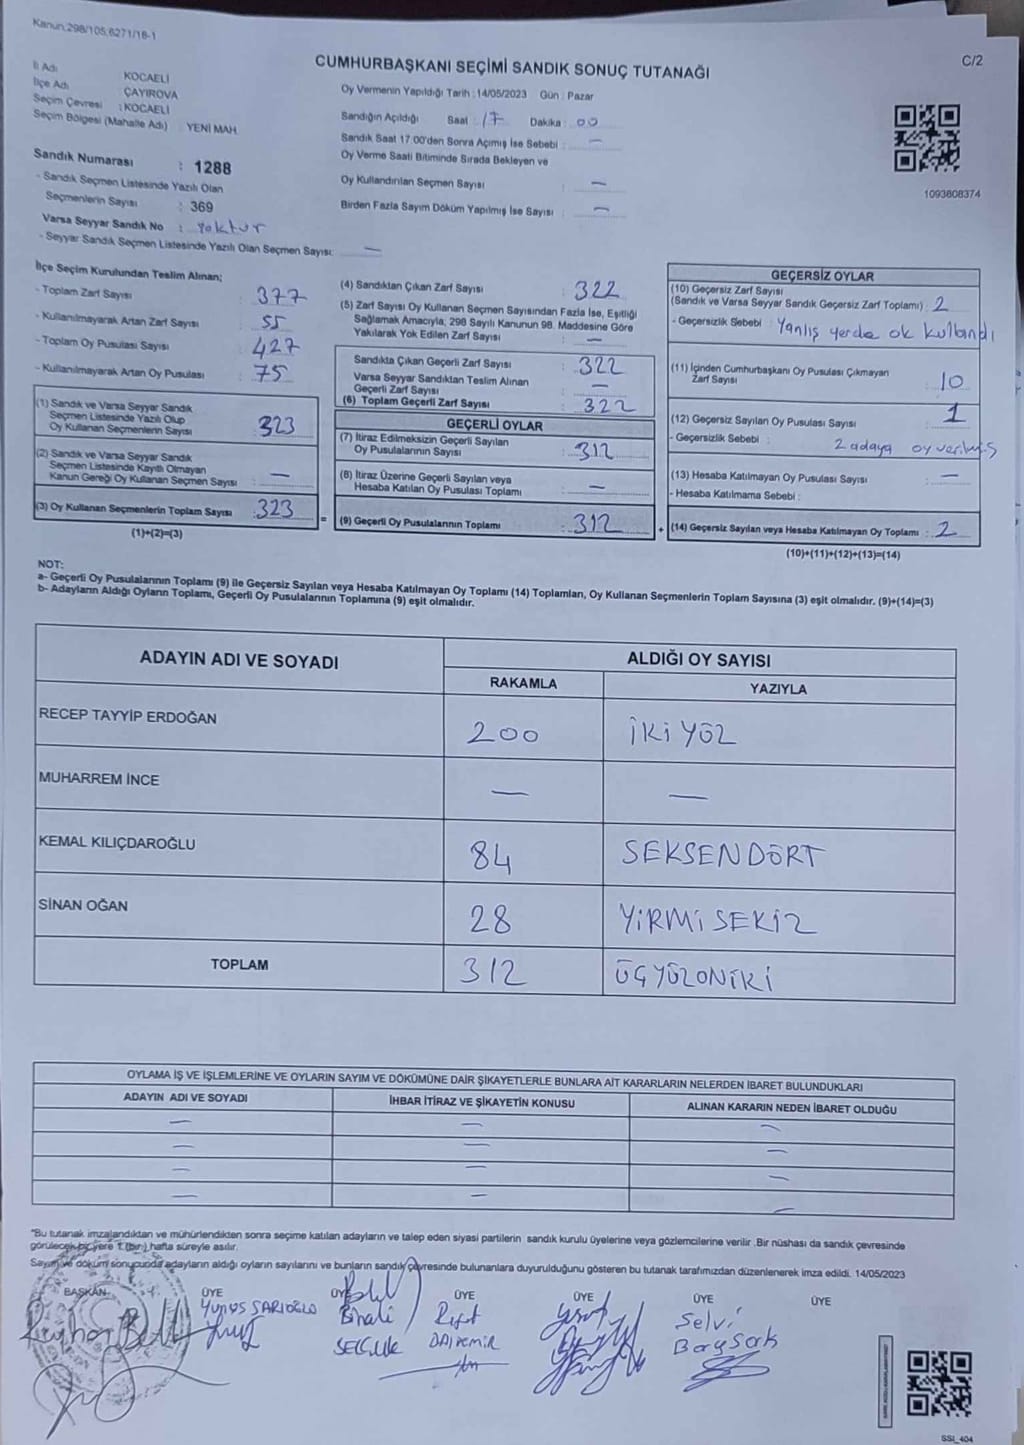 Kanun,298/105,6271/18-1
C/2
CUMHURBAŞKANI SEÇİMİ SANDIK SONUÇ TUTANAĞI
İl Adı KOCAELİ
İlçe Adı ÇAYIROVA
Seçim Çevresi : KOCAELİ
Seçim Bölgesi (Mahalle Adı) YENİ MAH.
Sandık Numarası : 1288
- Sandık Seçmen Listesinde Yazılı Olan
Seçmenlerin Sayısı : 369
Varsa Seyyar Sandık No : yoktur
- Seyyar Sandık Seçmen Listesinde Yazılı Olan Seçmen Sayısı: —
Oy Vermenin Yapıldığı Tarih : 14/05/2023 Gün : Pazar
Sandığın Açıldığı Saat : 17 Dakika : 00
Sandık Saat 17:00'den Sonra Açımış İse Sebebi : —
Oy Verme Saati Bitiminde Sırada Bekleyen ve
Oy Kullandırılan Seçmen Sayısı : —
Birden Fazla Sayım Döküm Yapılmış İse Sayısı : —
1093808374
İlçe Seçim Kurulundan Teslim Alınan;
- Toplam Zarf Sayısı : 377
- Kullanılmayarak Artan Zarf Sayısı : 55
- Toplam Oy Pusulası Sayısı : 427
- Kullanılmayarak Artan Oy Pusulası : 75
(1) Sandık ve Varsa Seyyar Sandık
Seçmen Listesinde Yazılı Olup
Oy Kullanan Seçmenlerin Sayısı : 323
(2) Sandık ve Varsa Seyyar Sandık
Seçmen Listesinde Kayıtlı Olmayan
Kanun Gereği Oy Kullanan Seçmen Sayısı : —
(3) Oy Kullanan Seçmenlerin Toplam Sayısı : 323
(1)+(2)=(3)
(4) Sandıktan Çıkan Zarf Sayısı : 322
(5) Zarf Sayısı Oy Kullanan Seçmen Sayısından Fazla İse, Eşitliği
Sağlamak Amacıyla, 298 Sayılı Kanunun 98. Maddesine Göre
Yakılarak Yok Edilen Zarf Sayısı : —
Sandıkta Çıkan Geçerli Zarf Sayısı : 322
Varsa Seyyar Sandıktan Teslim Alınan
Geçerli Zarf Sayısı : —
(6) Toplam Geçerli Zarf Sayısı : 322
GEÇERLİ OYLAR
(7) İtiraz Edilmeksizin Geçerli Sayılan
Oy Pusulalarının Sayısı : 312
(8) İtiraz Üzerine Geçerli Sayılan veya
Hesaba Katılan Oy Pusulası Toplamı : —
= (9) Geçerli Oy Pusulalarının Toplamı : 312
GEÇERSİZ OYLAR
(10) Geçersiz Zarf Sayısı
(Sandık ve Varsa Seyyar Sandık Geçersiz Zarf Toplamı) : 2
- Geçersizlik Sebebi : Yanlış yerde ok kullandı
(11) İçinden Cumhurbaşkanı Oy Pusulası Çıkmayan
Zarf Sayısı : 10
(12) Geçersiz Sayılan Oy Pusulası Sayısı : 1
- Geçersizlik Sebebi : 2 adaya oy verilmiş
(13) Hesaba Katılmayan Oy Pusulası Sayısı : —
- Hesaba Katılmama Sebebi :
+ (14) Geçersiz Sayılan veya Hesaba Katılmayan Oy Toplamı : 2
(10)+(11)+(12)+(13)=(14)
NOT:
a- Geçerli Oy Pusulalarının Toplamı (9) ile Geçersiz Sayılan veya Hesaba Katılmayan Oy Toplamı (14) Toplamları, Oy Kullanan Seçmenlerin Toplam Sayısına (3) eşit olmalıdır. (9)+(14)=(3)
b- Adayların Aldığı Oyların Toplamı, Geçerli Oy Pusulalarının Toplamına (9) eşit olmalıdır.
ADAYIN ADI VE SOYADI ALDIĞI OY SAYISI
RAKAMLA YAZIYLA
RECEP TAYYİP ERDOĞAN 200 İKİ YÜZ
MUHARREM İNCE — —
KEMAL KILIÇDAROĞLU 84 SEKSENDÖRT
SİNAN OĞAN 28 YİRMİ SEKİZ
TOPLAM 312 ÜÇYÜZONİKİ
OYLAMA İŞ VE İŞLEMLERİNE VE OYLARIN SAYIM VE DÖKÜMÜNE DAİR ŞİKAYETLERLE BUNLARA AİT KARARLARIN NELERDEN İBARET BULUNDUKLARI
ADAYIN ADI VE SOYADI İHBAR İTİRAZ VE ŞİKAYETİN KONUSU ALINAN KARARIN NEDEN İBARET OLDUĞU
— — —
— — —
— — —
— — —
"Bu tutanak imzalandıktan ve mühürlendikten sonra seçime katılan adayların ve talep eden siyasi partilerin sandık kurulu üyelerine veya gözlemcilerine verilir. Bir nüshası da sandık çevresinde
görülecek bir yere 1 (bir) hafta süreyle asılır.
Sayım ve döküm sonucunda adayların aldığı oyların sayılarını ve bunların sandık çevresinde bulunanlara duyurulduğunu gösteren bu tutanak tarafımızdan düzenlenerek imza edildi. 14/05/2023
BAŞKAN ÜYE ÜYE ÜYE ÜYE ÜYE ÜYE
Yunus SARIOĞLO Binali SELÇUK Rıfat DALDEMİR Selvi Baysak
SSI_404